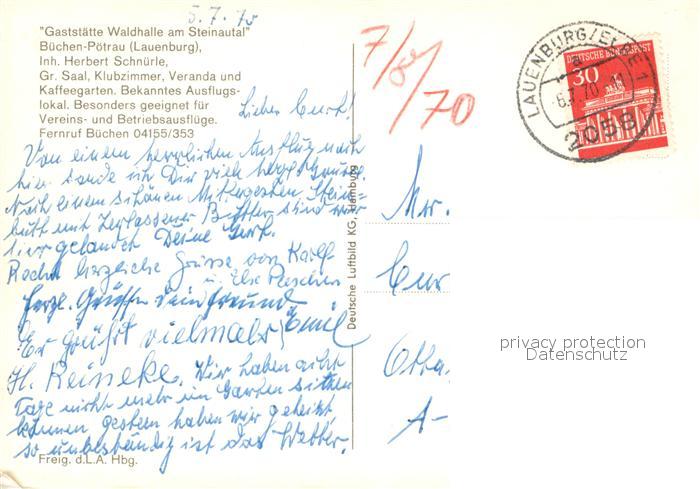 5.7.70
"Gaststätte Waldhalle am Steinautal"
Büchen-Pötrau (Lauenburg),
Inh. Herbert Schnürle,
Gr. Saal, Klubzimmer, Veranda und
Kaffeegarten. Bekanntes Ausflugs-
lokal. Besonders geeignet für
Vereins- und Betriebsausflüge.
Fernruf Büchen 04155/353
Lieber Curt!
Von einem herrlichen Ausflug nach
hier sende ich Dir viel herzl. Grüße.
Nach einem schönen Mittagessen Stein-
butt mit zerlassener Butter sind wir
hier gelandet Deine
Recht herzliche Grüsse von Karl
u. Else
Herzl. Grüße Dein Freund
Emil
Er grüßt vielmals
H. Reineke. Wir haben acht
Tage nicht mehr im Garten sitzen
können gestern haben wir geheizt,
so unbeständig ist das Wetter.
Freig. d.L.A. Hbg.
Deutsche Luftbild KG, Hamburg
7/
70
LAUENBURG/ELBE 1
-6.7.70-
2058
DEUTSCHE BUNDESPOST
30
Mr.
Cur
Otta
A-
privacy protection
Datenschutz